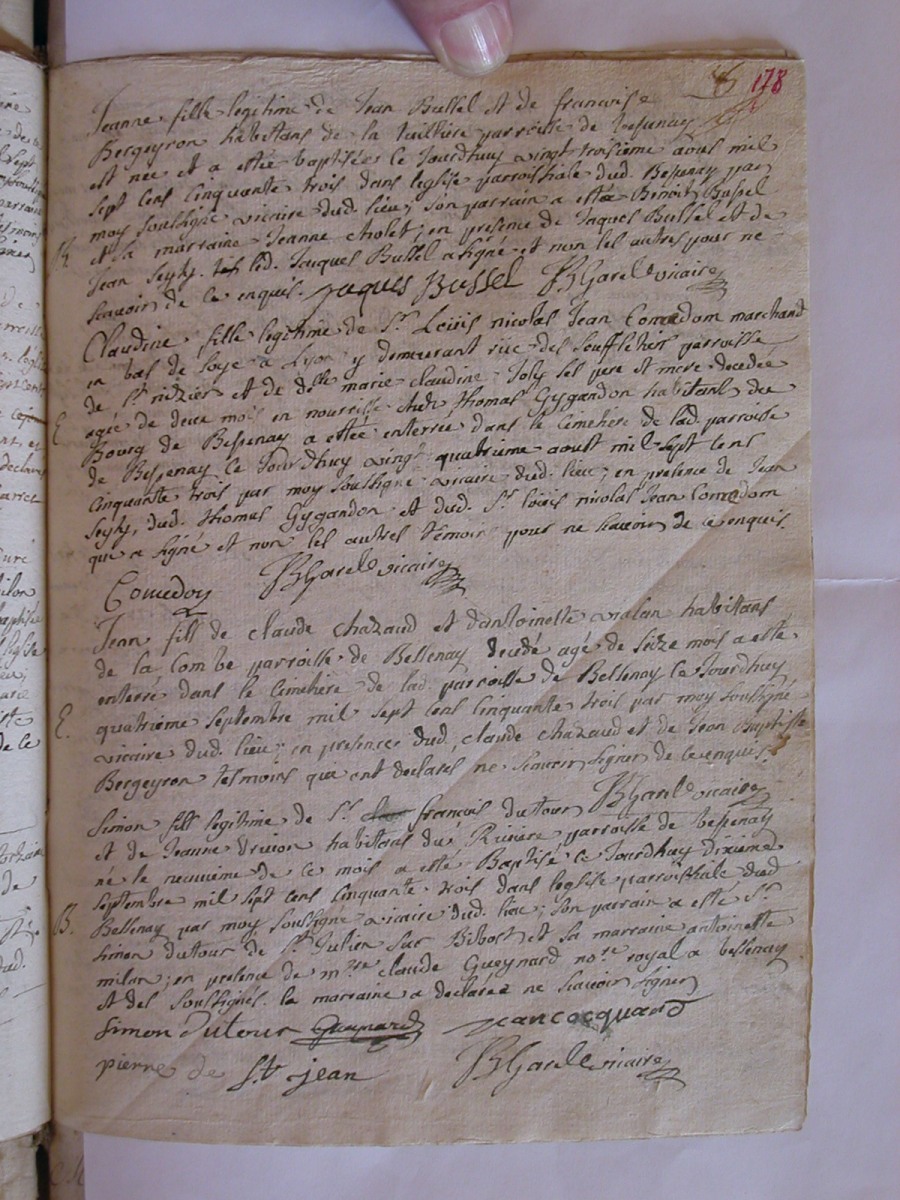 178
Jeanne fille legitime de Jean Bussel et de francoise
Bergeyron habitans de la tuilliere parroisse de bessenay
est née et a estée baptisée ce jourdhuy vingt troisieme aoust mil
sept cens cinquante trois dans leglise parroissiale dud. Bessenay par
moy soussigne vicaire dud. lieu, son parrain a estée Benoit Bussel
B. et sa marraine Jeanne cholet, en presence de Jaques Bussel et de
Jean Seyty. led. Jacques Bussel a signé et non les autres pour ne
scavoir de ce enquis. jaques Bussel JB Garel vicaire
Claudine fille legitime de Sr. Loüis nicolas Jean Comedom marchand
en bas de soye a Lyon y demeurant rüe des Souffletiers parroisse
de St. nizier et de dlle. marie claudine Joly ses pere et mere decedée
agée de deux mois en nourrisse chez thomas Gygandon habitant du
E Bourg de Bessenay a estée enterrée dans le cimetiere de lad. parroisse
de Bessenay ce Jourdhuy vingt quatrieme aoust mil sept cens
cinquante trois par moy soussigne vicaire dud. lieu, en presence de Jean
Seyty, dud. thomas Gygandon et dud. Sr. Loüis nicolas Jean Comedom
qui a signé et non les autres temoins pour ne scavoir de ce enquis.
Comedon JB Garel vicaire
Jean fils de claude chazaud et dantoinette vialan habittans
de la Combe parroisse de Bessenay decedé agé de seize mois a esté
enterré dans le cimetiere de lad. parroisse de Bessenay ce Jourdhuy
E. quatrieme septembre mil sept cens cinquante trois par moy soussigné
vicaire dud. lieu, en presence dud. claude chazaud et de Jean Baptiste
Bergeyron tesmoins qui ont declarés ne scavoir signer de ce enquis.
JB Garel vicaire
Simon fils legitime de Sr. françois dutour
et de Jeanne habittans du Riviere parroisse de bessenay
né le neuvieme de ce mois a esté Baptisé ce Jourdhuy dixieme
septembre mil sept cens cinquante trois dans leglise parroissiale dud
B. Bessenay par moy soussigne vicaire dud. lieu, son parrain a esté Sr.
simon dutour de St. Julien sur Bibost et sa marraine antoinette
milon, en presence de mre. claude Gueynard nore. royal a bessenay
et des soussignés. la marraine a declarée ne scavoir signer
simon dutour Gueynard jean cocquard
pierre de St. jean JB Garel vicaire